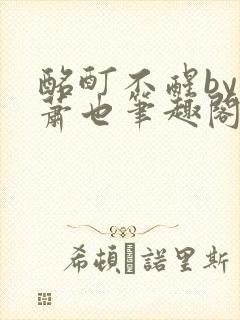 酩酊不醒by
蕭也筆趣閣
希頓·諾里斯